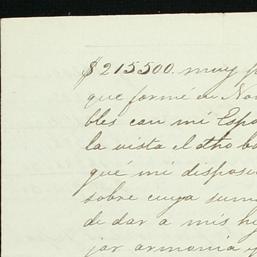 $215500. muy p
que formé en No
bles con mi Espo
la vista el dho ba
qué mi disposi
sobre cuya sum
de dar a mis hi
jar armonia y